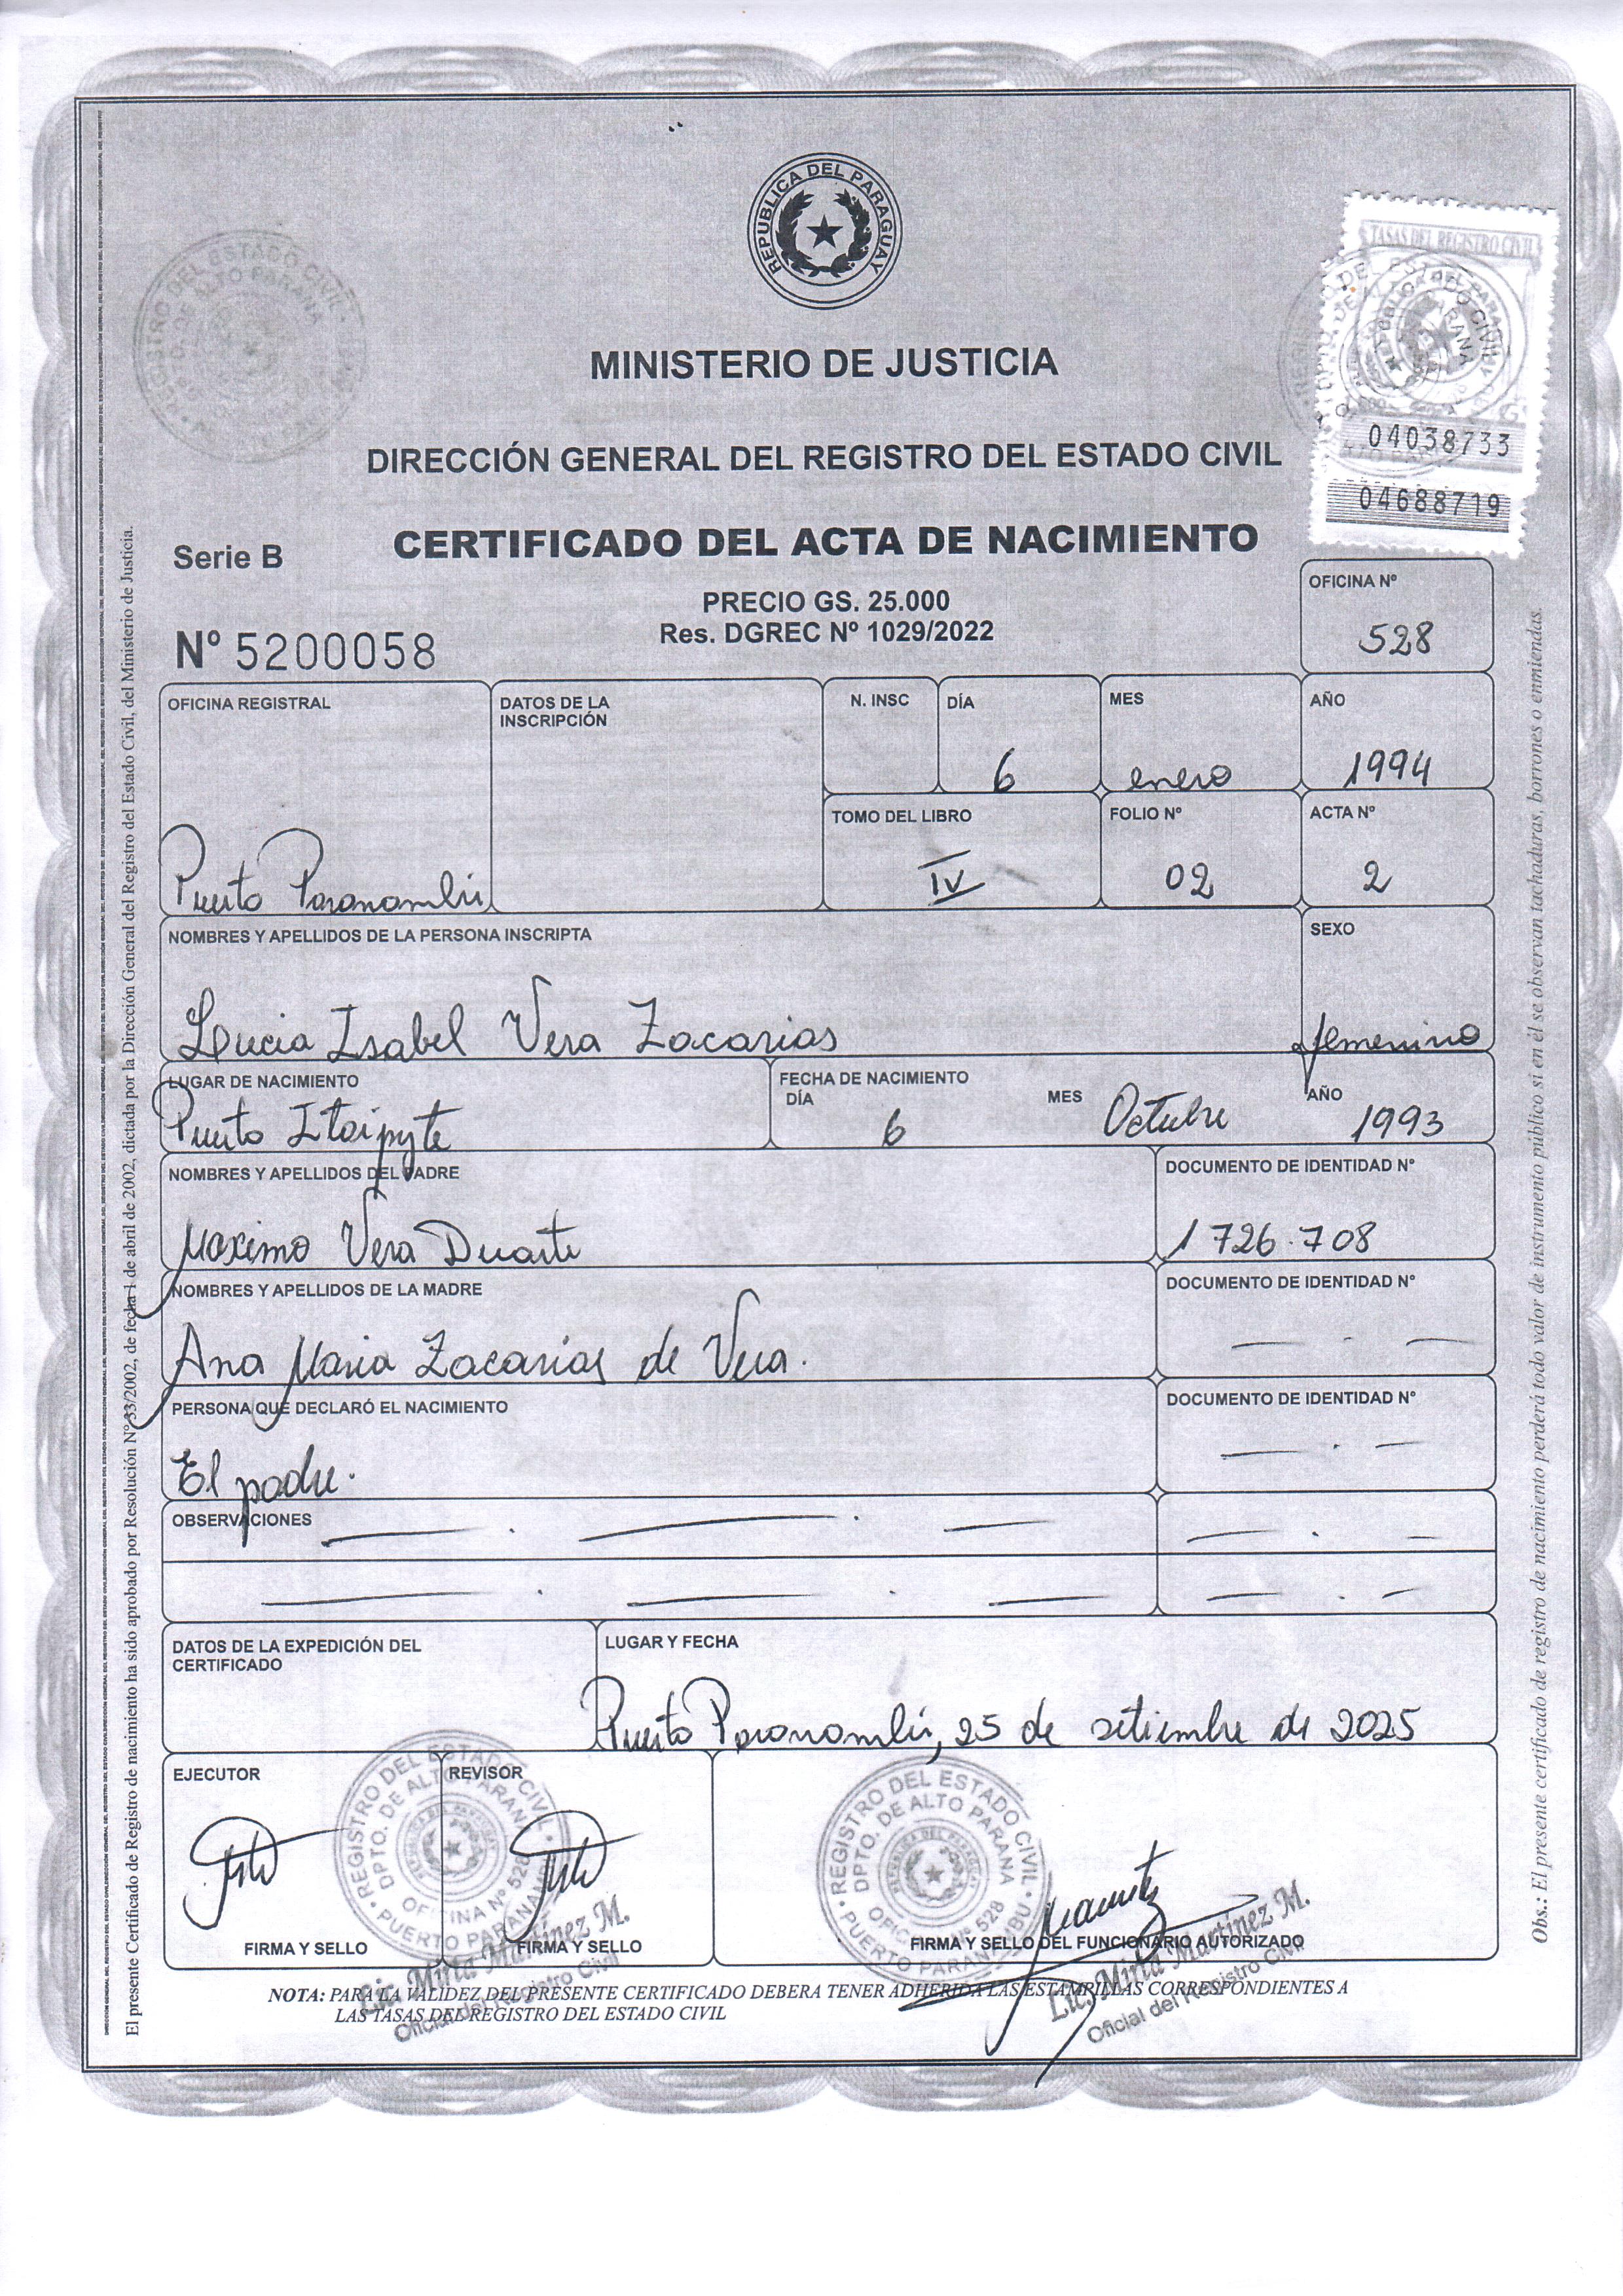 REPUBLICA DEL PARAGUAY
MINISTERIO DE JUSTICIA
DIRECCIÓN GENERAL DEL REGISTRO DEL ESTADO CIVIL
CERTIFICADO DEL ACTA DE NACIMIENTO
Serie B
PRECIO GS. 25.000
Res. DGREC Nº 1029/2022
Nº 5200058
TASAS DEL REGISTRO CIVIL
04038733
04688719
OFICINA Nº
528
OFICINA REGISTRAL
Puerto Paranambú
DATOS DE LA
INSCRIPCIÓN
N. INSC
DÍA
6
MES
enero
AÑO
1994
TOMO DEL LIBRO
IV
FOLIO Nº
02
ACTA Nº
2
NOMBRES Y APELLIDOS DE LA PERSONA INSCRIPTA
Lucia Isabel Vera Zacarias
SEXO
femenino
LUGAR DE NACIMIENTO
Puerto Itaipyte
FECHA DE NACIMIENTO
DÍA
6
MES
Octubre
AÑO
1993
NOMBRES Y APELLIDOS DEL PADRE
Maximo Vera Duarte
DOCUMENTO DE IDENTIDAD Nº
1726.708
NOMBRES Y APELLIDOS DE LA MADRE
Ana Maria Zacarias de Vera.
DOCUMENTO DE IDENTIDAD Nº
PERSONA QUE DECLARÓ EL NACIMIENTO
El padre.
DOCUMENTO DE IDENTIDAD Nº
OBSERVACIONES
DATOS DE LA EXPEDICIÓN DEL
CERTIFICADO
LUGAR Y FECHA
Puerto Paranambú, 25 de setiembre de 2025
EJECUTOR
FIRMA Y SELLO
REVISOR
FIRMA Y SELLO
REGISTRO DEL ESTADO CIVIL
DPTO. DE ALTO PARANA
OFICINA Nº 528
PUERTO PARANAMBU
Lic. Mirta Martínez M.
Oficial del Registro Civil
REGISTRO DEL ESTADO CIVIL
DPTO. DE ALTO PARANA
OFICINA Nº 528
PUERTO PARANAMBU
FIRMA Y SELLO DEL FUNCIONARIO AUTORIZADO
Lic. Mirta Martínez M.
Oficial del Registro Civil
NOTA: PARA LA VALIDEZ DEL PRESENTE CERTIFICADO DEBERA TENER ADHERIDA LAS ESTAMPILLAS CORRESPONDIENTES A
LAS TASAS DEL REGISTRO DEL ESTADO CIVIL
El presente Certificado de Registro de nacimiento ha sido aprobado por Resolución Nº 33/2002, de fecha 1 de abril de 2002, dictada por la Dirección General del Registro del Estado Civil, del Ministerio de Justicia.
Obs.: El presente certificado de registro de nacimiento perderá todo valor de instrumento público si en él se observan tachaduras, borrones o enmiendas.